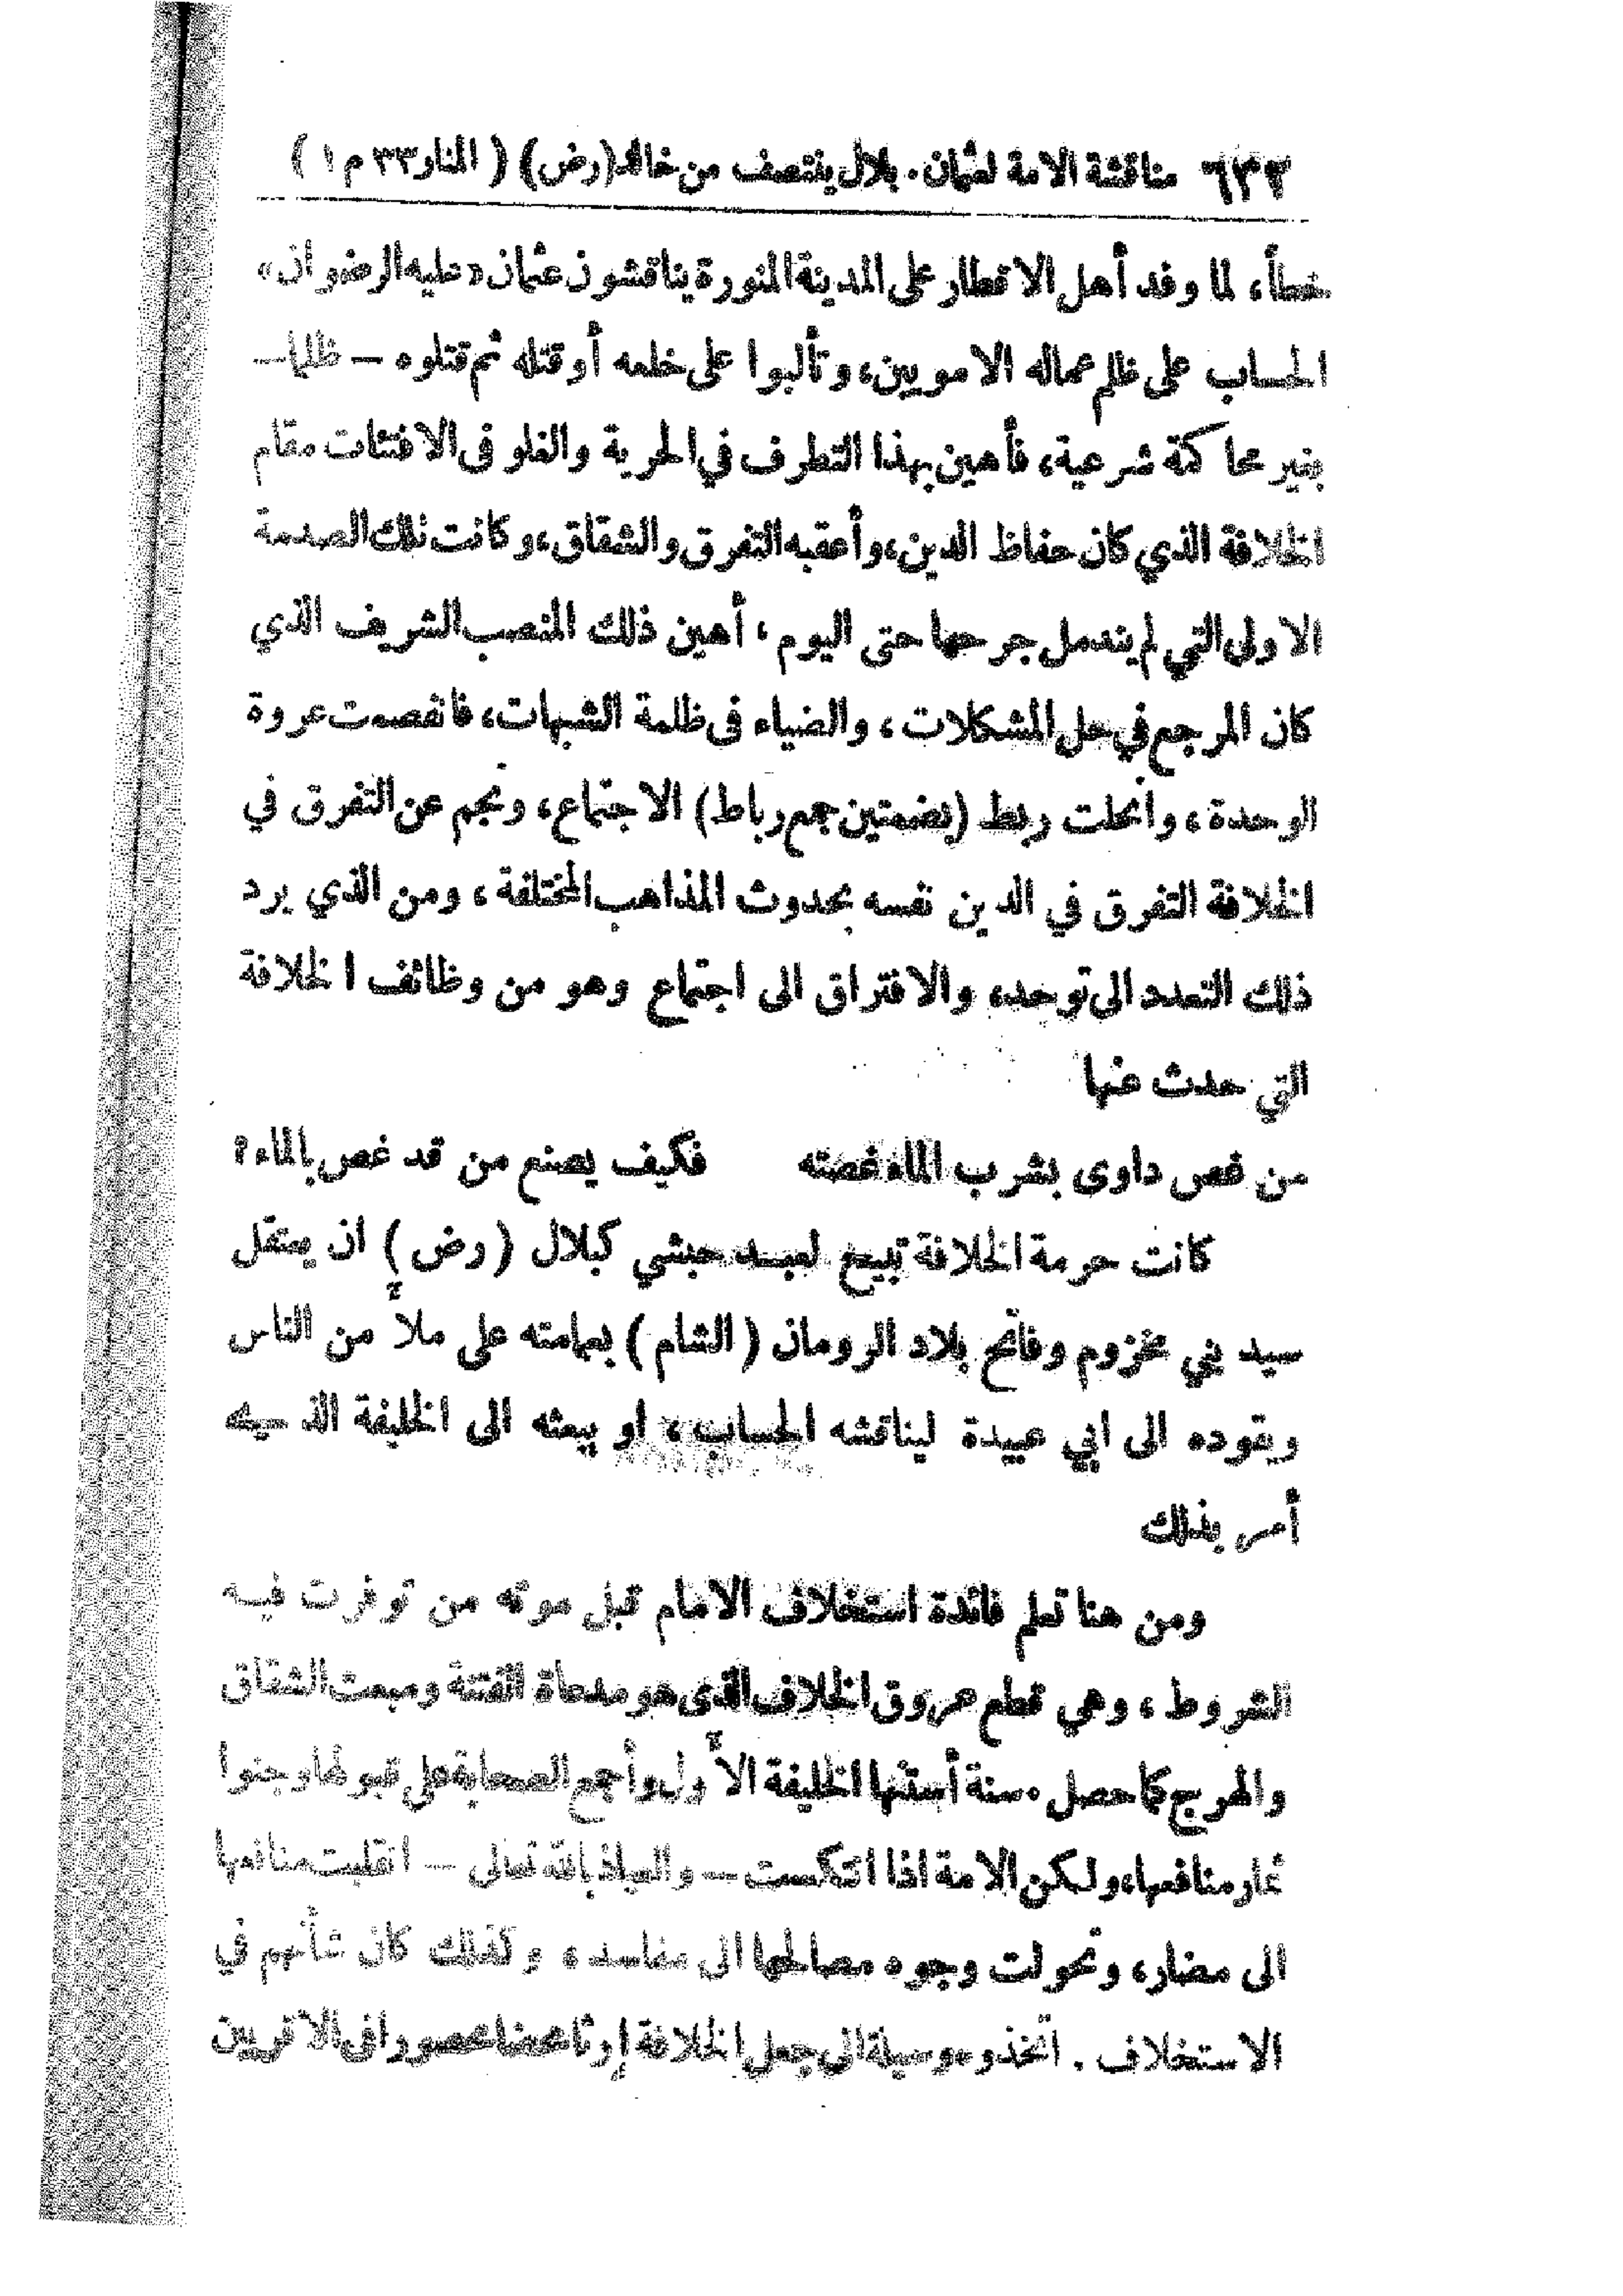 ٦٣٢ مناقشة الامة لعثمان. بلال ينتصف من خالد (رض) ( المنار ٣٣ م ١ )
خطأ، لما وفد أهل الاقطار على المدينة المنورة يناقشون عثمان «عليه الرضوان»
الحساب على ظلم عماله الامويين، وتألبوا على خلعه أو قتله ثم قتلوه — ظلما —
بغير محاكمة شرعية، فأهين بهذا التطرف في الحرية والغلو فى الافتئات مقام
الخلافة الذي كان حفاظ الدين، وأعقبه التفرق والشقاق، وكانت تلك الصدمة
الاولى التي لم يندمل جرحها حتى اليوم، أهين ذلك المنصب الشريف الذي
كان المرجع في حل المشكلات، والضياء فى ظلمة الشبهات، فانفصمت عروة
الوحدة، وانحلت ربط (بضمتين جمع رباط) الاجتماع، ونجم عن التفرق في
الخلافة التفرق في الدين نفسه بحدوث المذاهب المختلفة، ومن الذي يرد
ذلك التعدد الى توحد، والافتراق الى اجتماع وهو من وظائف الخلافة
التي حدث عنها
من غص داوى بشرب الماء غصته فكيف يصنع من قد غص بالماء؟
كانت حرمة الخلافة تبيح لعبد حبشي كبلال (رض) ان يعتقل
سيد بني مخزوم وفاتح بلاد الرومان (الشام) بعمامته على ملأ من الناس
ويقوده الى ابي عبيدة ليناقشه الحساب، او يبعثه الى الخليفة الذي
أمر بذلك
ومن هنا تعلم فائدة استخلاف الامام قبل موته من توفرت فيه
الشروط، وهي قطع عروق الخلاف الذى هو مدعاة الفتنة ومبعث الشقاق
والهرج كما حصل. سنة أستنها الخليفة الأول وأجمع الصحابة على قبولها وجنوا
ثمار منافعها، ولكن الامة اذا انتكست — والعياذ بالله تعالى — انقلبت منافعها
الى مضار، وتحولت وجوه مصالحها الى مفاسد، وكذلك كان شأنهم في
الاستخلاف. اتخذوه وسيلة الى جعل الخلافة إرثا محضا محصورا فى الاقربين